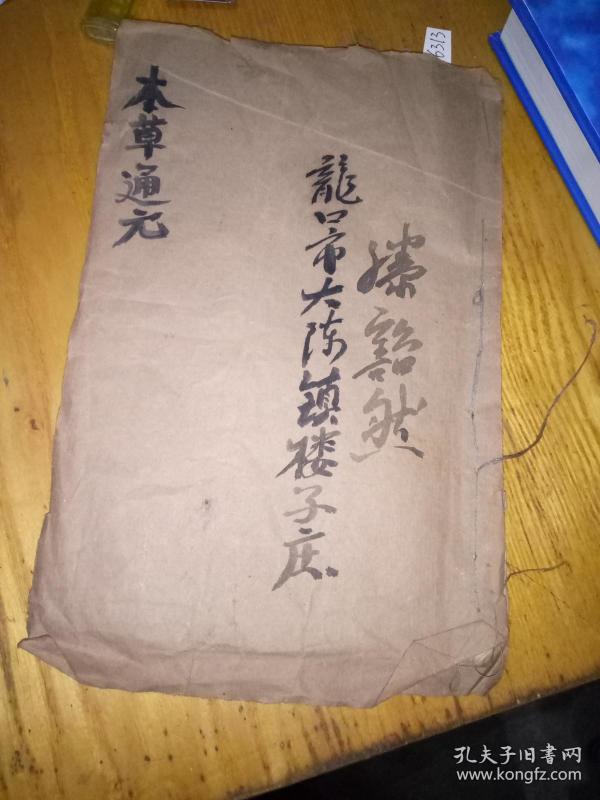 本草通元
龍口市大陈鎮楼子庄
滕詔然
6313
孔夫子旧書网
www.kongfz.com